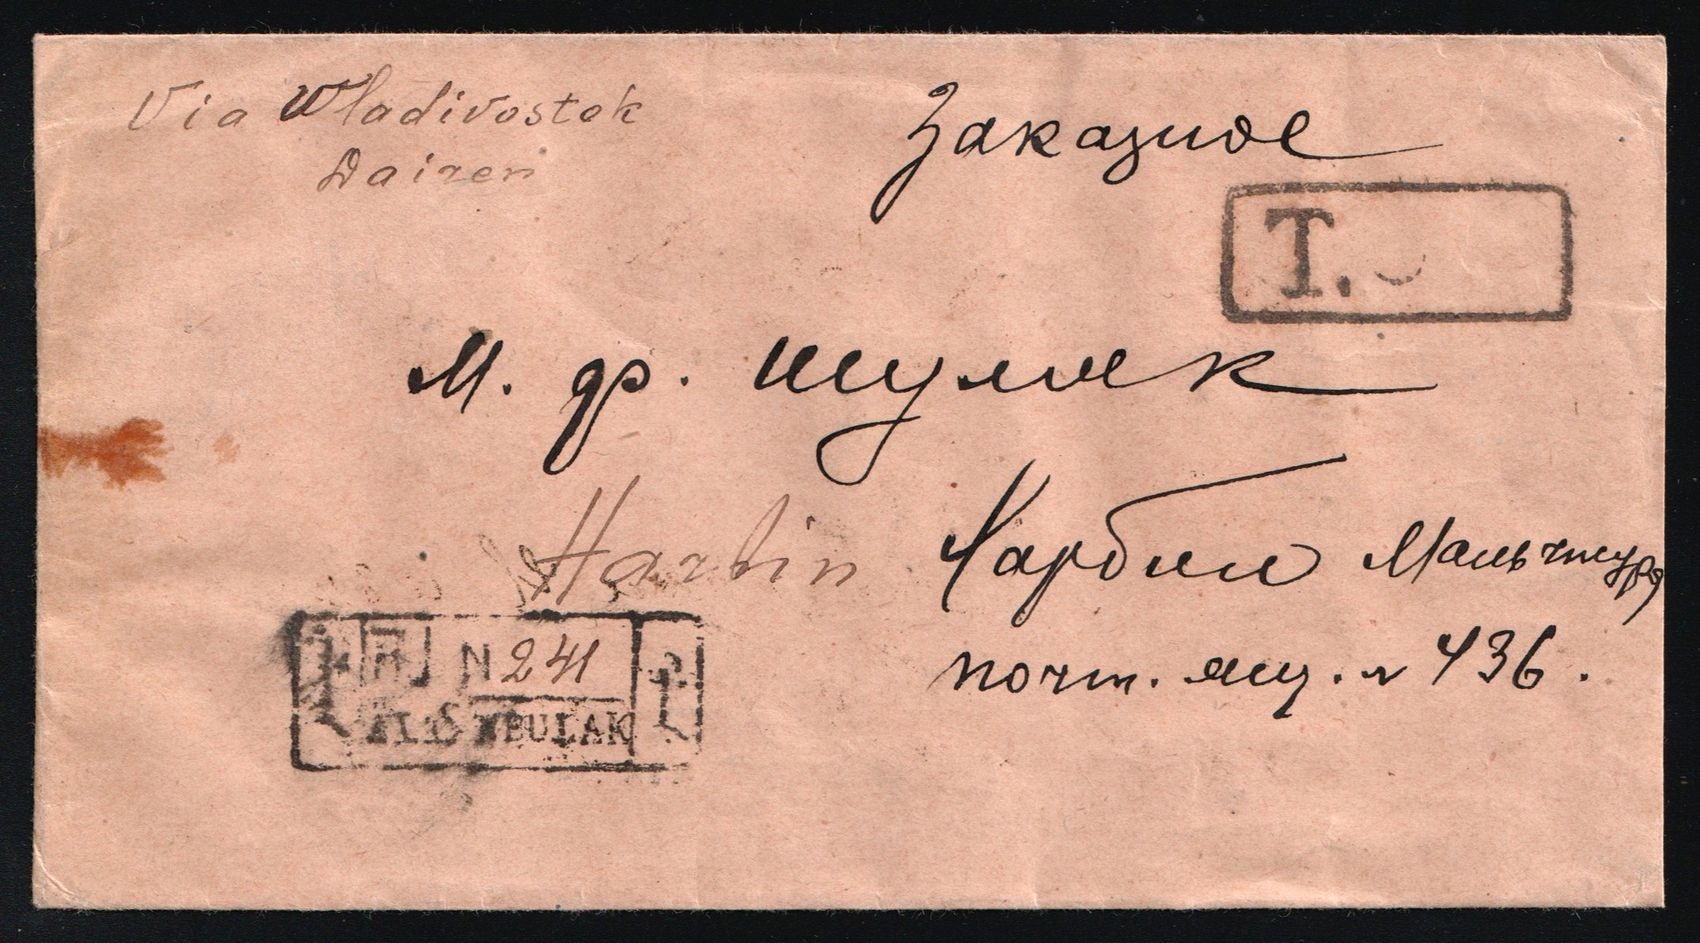 Via Wladivostok
Dairen
Заказное
T.
М. др. Шулек
Harbin
Харбин Маньчжур
почт. ящ. № 436.
R N 241
BULAK